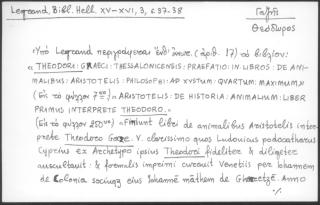 Legrand, Bibl. Hell. XV-XVI, 3, σ. 37-38
Γαζῆς
Θεόδωρος
Ὑπὸ Legrand περιγράφεται (ἀριθ. 17) τὸ βιβλίον:
« THEODORI: GRAECI: THESSALONICENSIS: PRAEFATIO: IN LIBROS: DE ANI-
MALIBUS: ARISTOTELIS: PHILOSOPHI: AD XYSTUM: QVARTUM: MAXIMUM »
(Εἰς τὸ φύλλον 7ον) « ARISTOTELIS: DE HISTORIA: ANIMALIUM: LIBER
PRIMUS INTERPRETE THEODORO. »
(Εἰς τὸ φύλλον « Finiunt libri de animalibus Aristotelis inter-
prete Theodoro Gaze. V. clarissimo quos Ludouicus podocatharus
Cyprius ex Archetypo ipsius Theodori fideliter & diligeter
auscultauit: & formulis imprimi curauit Venetiis per Iohannem
de Colonia sociumq eius Iohannē māthem de Anno
·/.